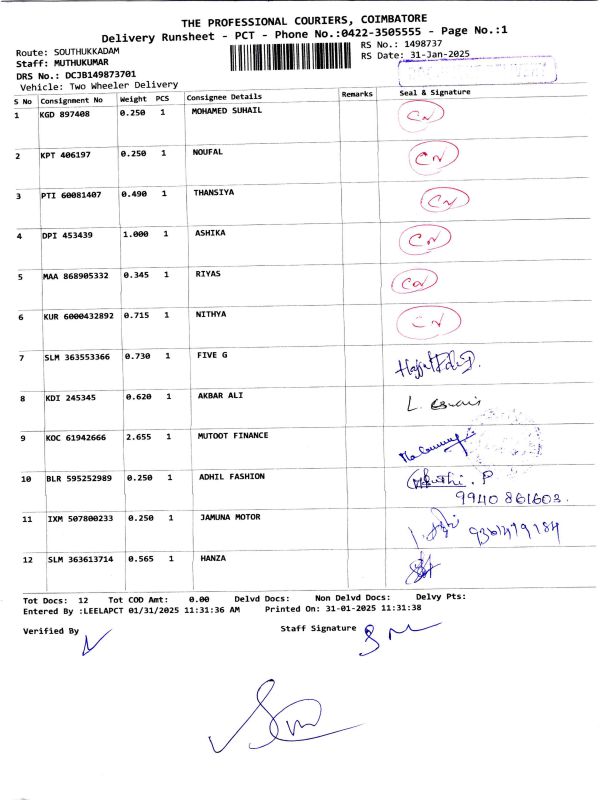 THE PROFESSIONAL COURIERS, COIMBATORE
Delivery Runsheet - PCT - Phone No.:0422-3505555 - Page No.:1
Route: SOUTHUKKADAM
RS No.: 1498737
Staff: MUTHUKUMAR
RS Date: 31-Jan-2025
DRS No.: DCJB149873701
Vehicle: Two Wheeler Delivery
S No Consignment No Weight PCS Consignee Details Remarks Seal & Signature
1 KGD 897408 0.250 1 MOHAMED SUHAIL CN
2 KPT 406197 0.250 1 NOUFAL CN
3 PTI 60081407 0.490 1 THANSIYA CN
4 DPI 453439 1.000 1 ASHIKA CN
5 MAA 868905332 0.345 1 RIYAS CN
6 KUR 6000432892 0.715 1 NITHYA CN
7 SLM 363553366 0.730 1 FIVE G
8 KDI 245345 0.620 1 AKBAR ALI L.
9 KOC 61942666 2.655 1 MUTOOT FINANCE
10 BLR 595252989 0.250 1 ADHIL FASHION P
9940 861603.
11 IXM 507800233 0.250 1 JAMUNA MOTOR
12 SLM 363613714 0.565 1 HANZA
Tot Docs: 12 Tot COD Amt: 0.00 Delvd Docs: Non Delvd Docs: Delvy Pts:
Entered By :LEELAPCT 01/31/2025 11:31:36 AM Printed On: 31-01-2025 11:31:38
Verified By
Staff Signature